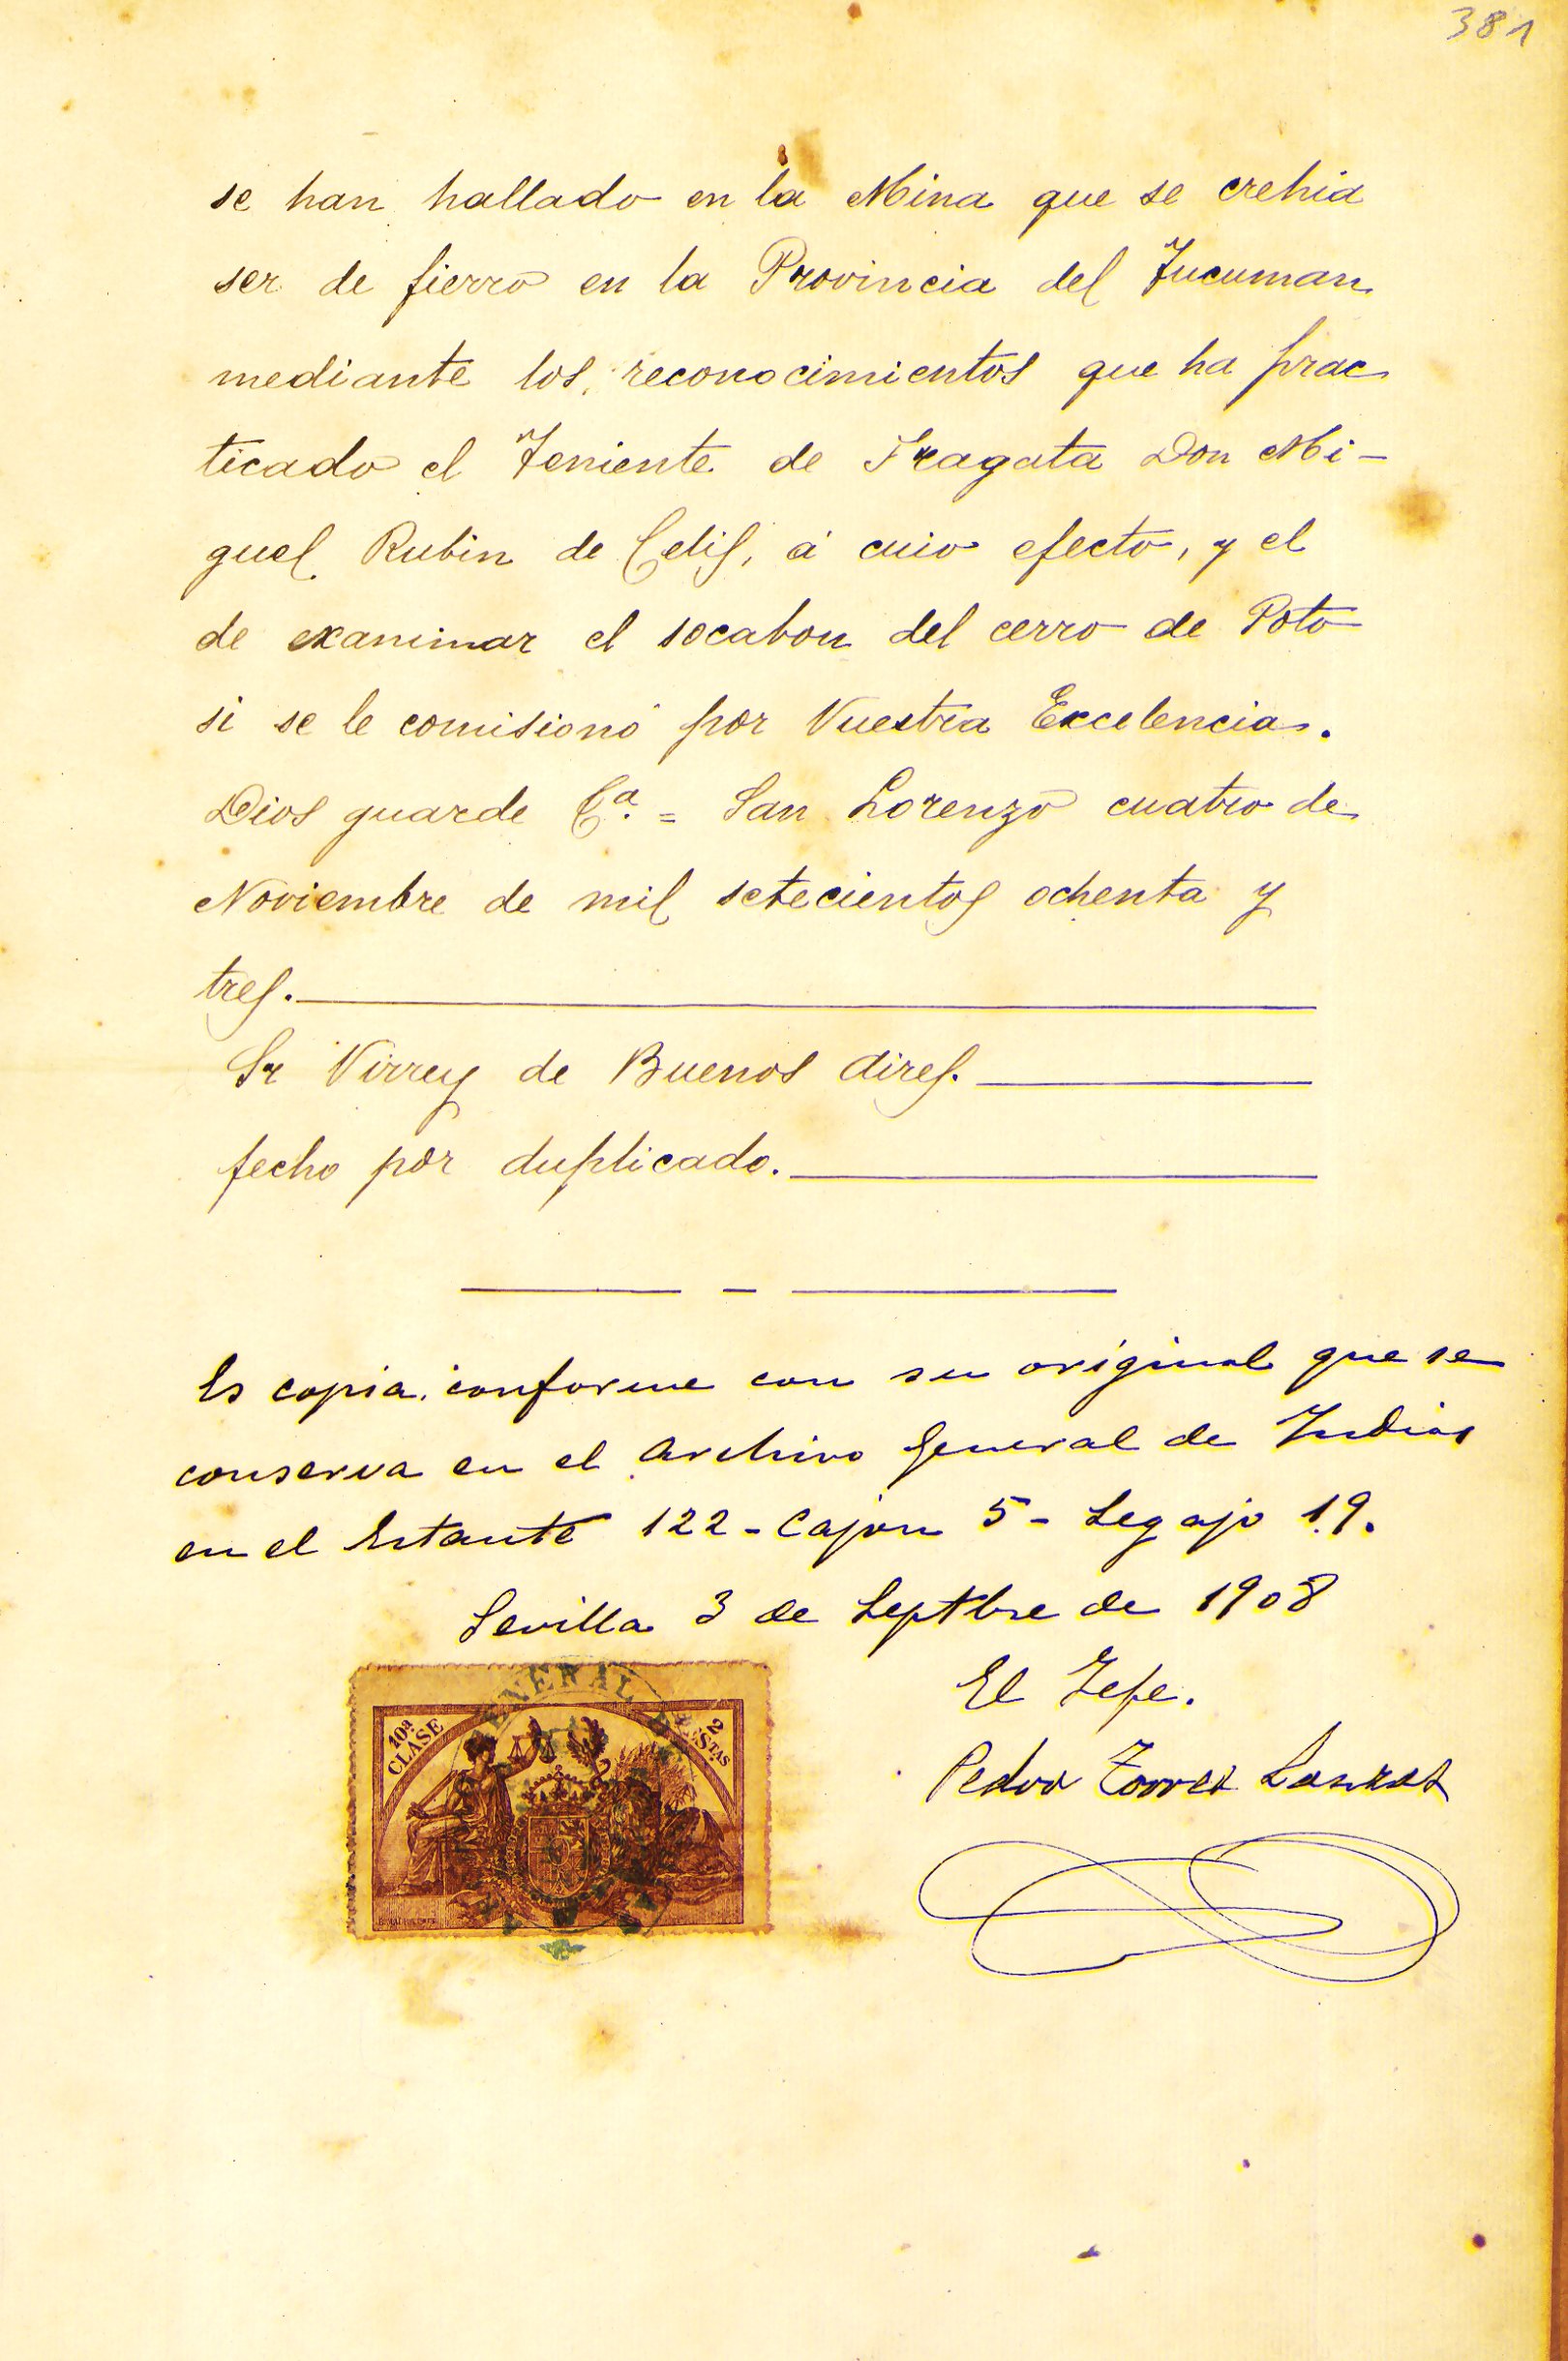 381
se han hallado en la Mina que se crehia
ser de fierro en la Provincia del Tucuman
mediante los reconocimientos que ha prac
ticado el Teniente de Fragata Don Mi-
guel Rubin de Celis, á cuio efecto, y el
de examinar el socabon del cerro de Poto
si se le comisionó por Vuestra Excelencia.
Dios guarde Ca. = San Lorenzo cuatro de
Noviembre de mil setecientos ochenta y
tres.
Sr Virrey de Buenos Aires.
fecho por duplicado.
Es copia conforme con su original que se
conserva en el Archivo General de Indias
en el Estante 122 - Cajon 5 - Legajo 19.
Sevilla 3 de Septbre de 1908
El Jefe.
Pedro Torres Lanzas
10ª CLASE
2
ENERAL